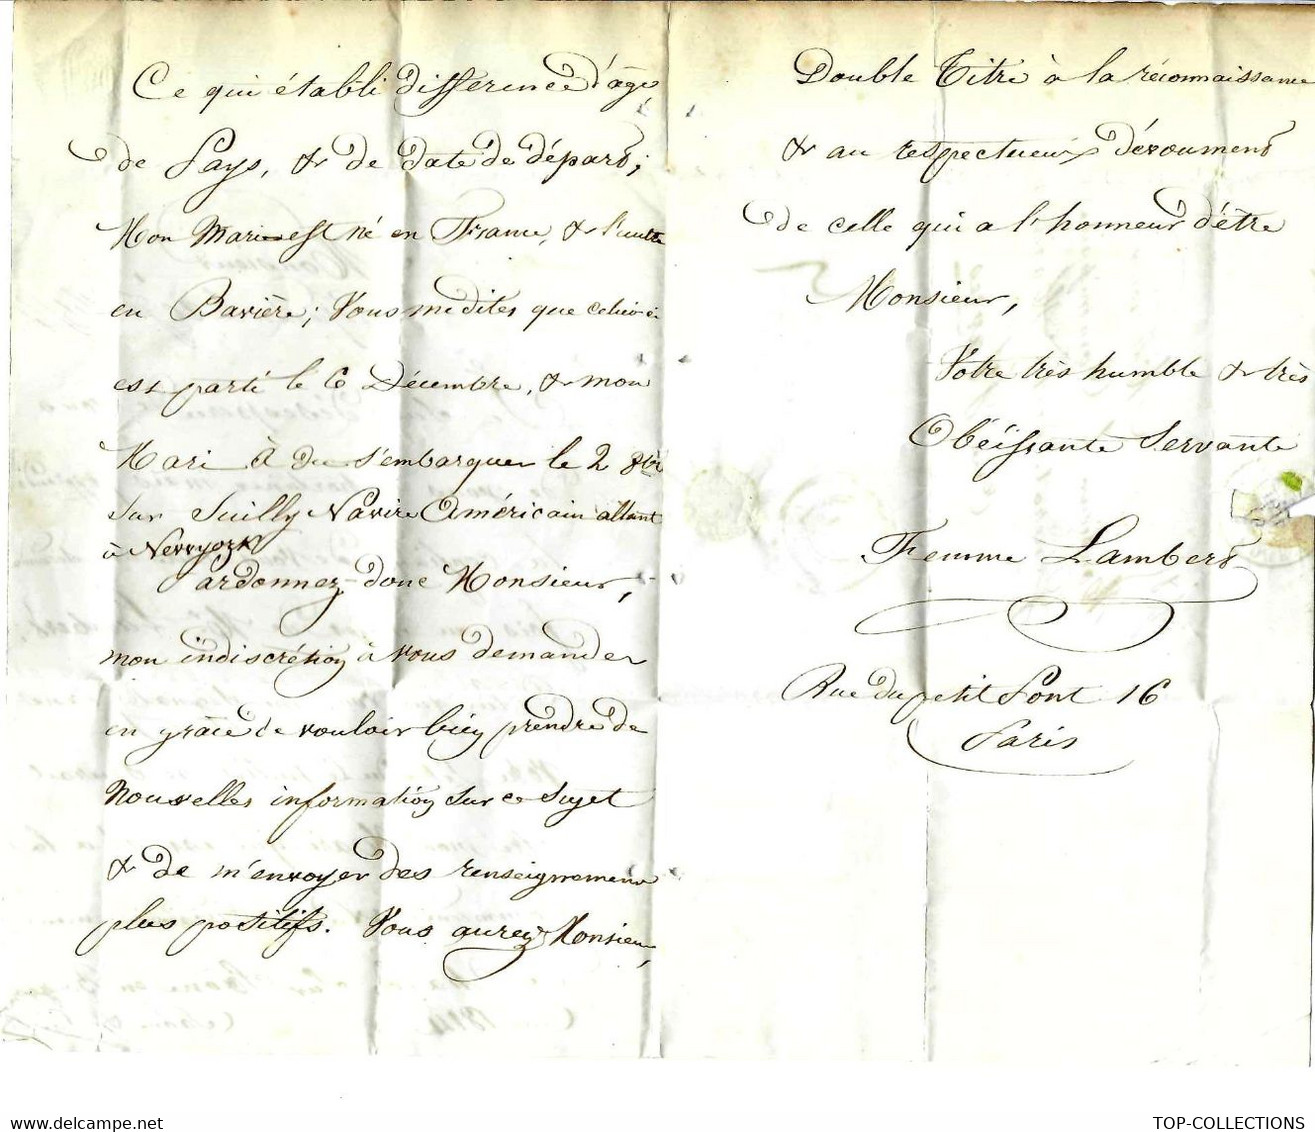 Ce qui établi différence d'âge
de Pays, & de date de départ;
Mon Mari est né en France, & l'autre
en Bavière; Vous me dites que celui-ci
est parti le 6 Décembre, & mon
Mari à du s'embarquer le 2 9bre
sur Suilly Navire Américain allant
à Newyork
Pardonnez-donc Monsieur,
mon indiscrétion à vous demander
en grâce de vouloir bien prendre de
Nouvelles information sur ce Sujet
& de m'envoyer des renseignements
plus positifs. Vous aurez Monsieur,
Double Titre à la réconnaissance
& au respectueux dévoument
de celle qui a l'honneur d'être
Monsieur,
Votre très humble & très
Obéissante Servante
Femme Lambert
Rue du petit Pont 16
Paris
delcampe.net
TOP-COLLECTIONS